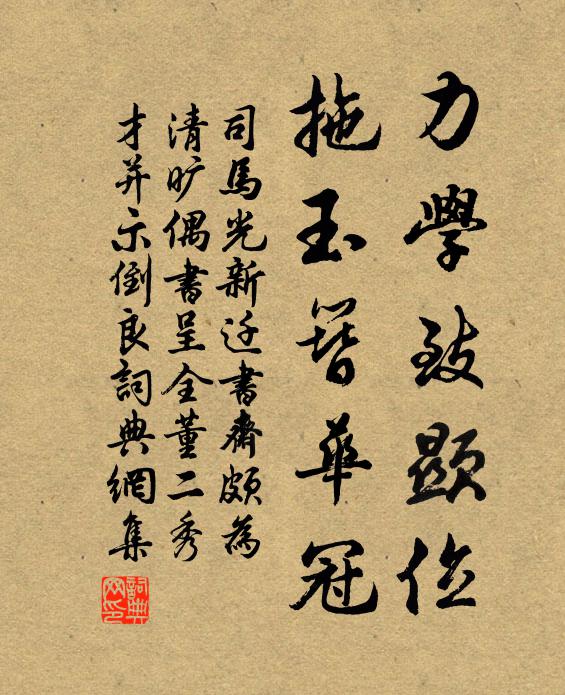 力學致顯位
拖玉簪華冠
司馬光新迁書齋頗為
清旷偶書呈全董二秀
才并示倒良詞典網集
詞典网印